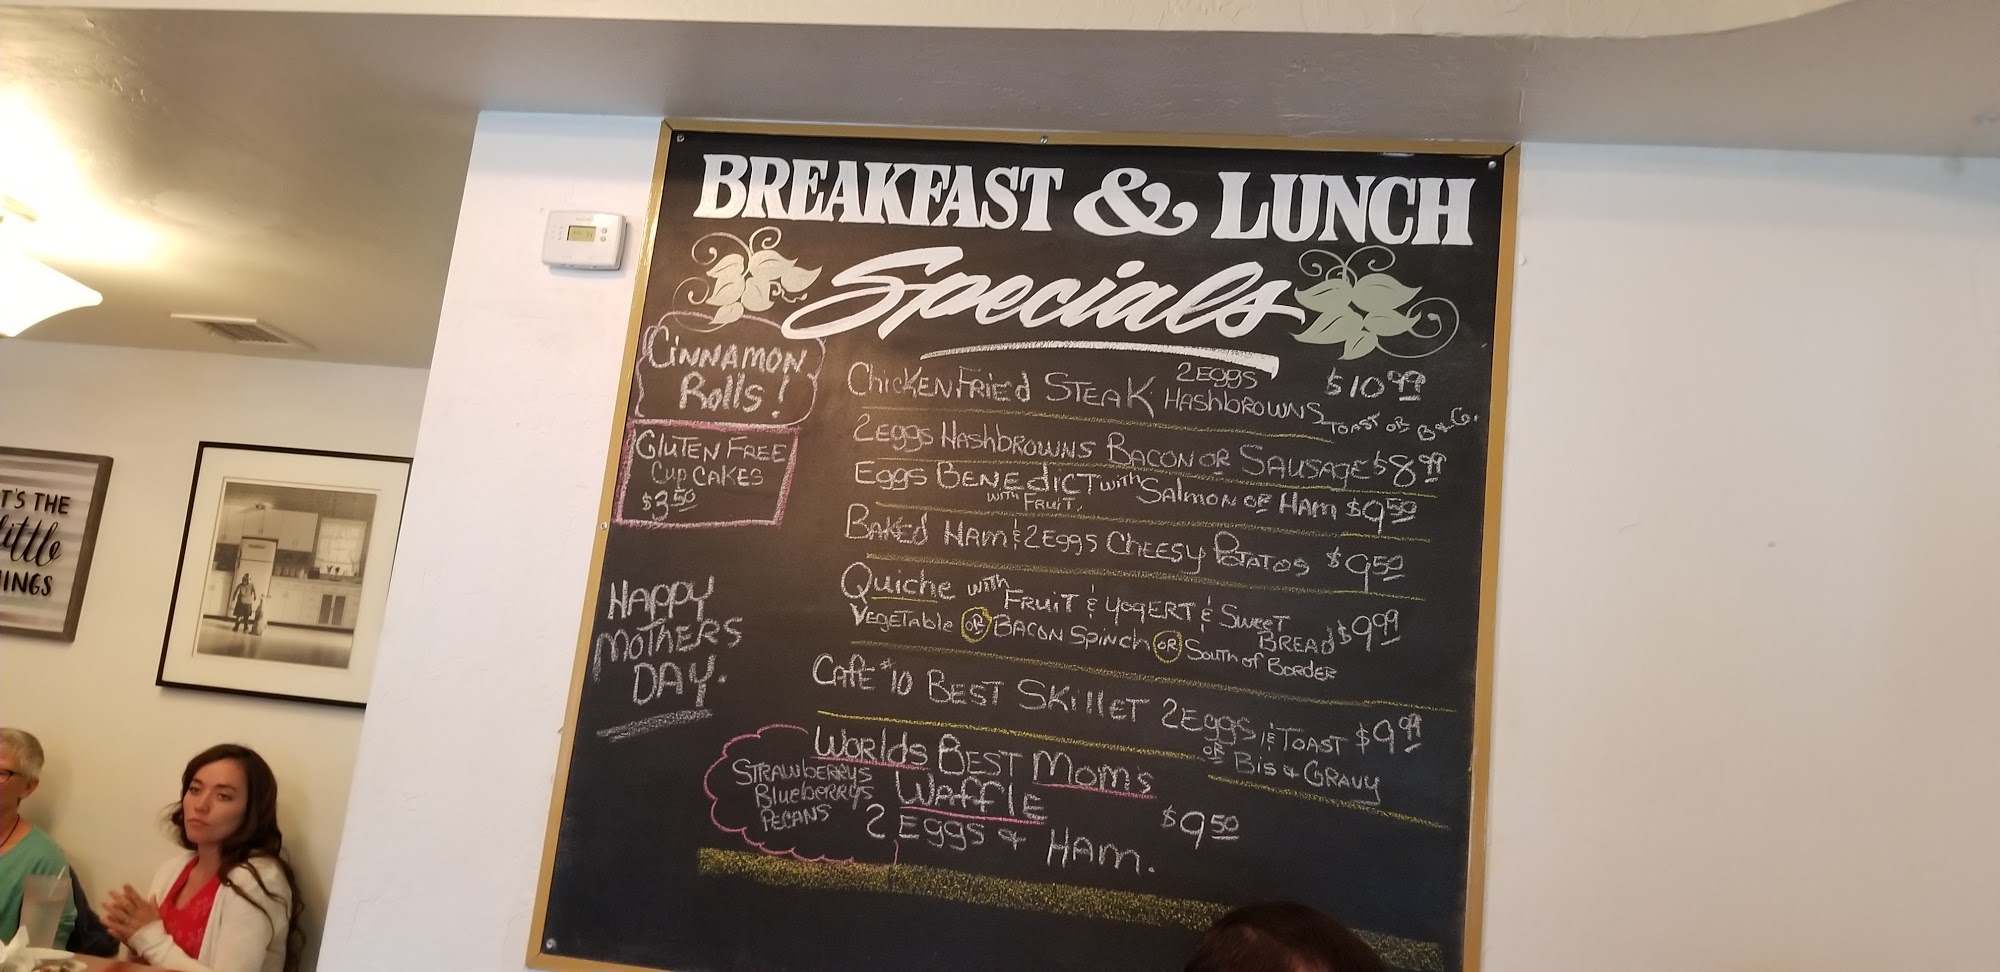 BREAKFAST & LUNCH
Specials
CiNNAMON
Rolls!
GluTEN FREE
Cup CAKES
$3.50
HAPPY
MOTHERS
DAY.
ChicKEN FRiEd STEAK 2 EGGS HAShbROWNS $10.99
TOAST OR B & G.
2 EGGS HAShbROWNS BACON OR SAUSAGE $8.99
EGGS BENEdiCT with SAlmON OR HAM $9.50
WITH FRuiT,
BAKEd HAM & 2 EGGS ChEESY POTATOS $9.50
Quiche with FRuiT & YOGERT & SWEET BREAD $9.99
VEGETAble OR BACON SpiNch OR SouTh of BORDER
CAfE #10 BEST SKillET 2 EGGS & TOAST $9.99
OR Bis & GRAVY
WORldS BEST MOM'S
WAfflE
STRAWbERRYS
BluEbERRYS
PECANS
2 EGGS & HAM.
$9.50
T'S THE
little
INGS